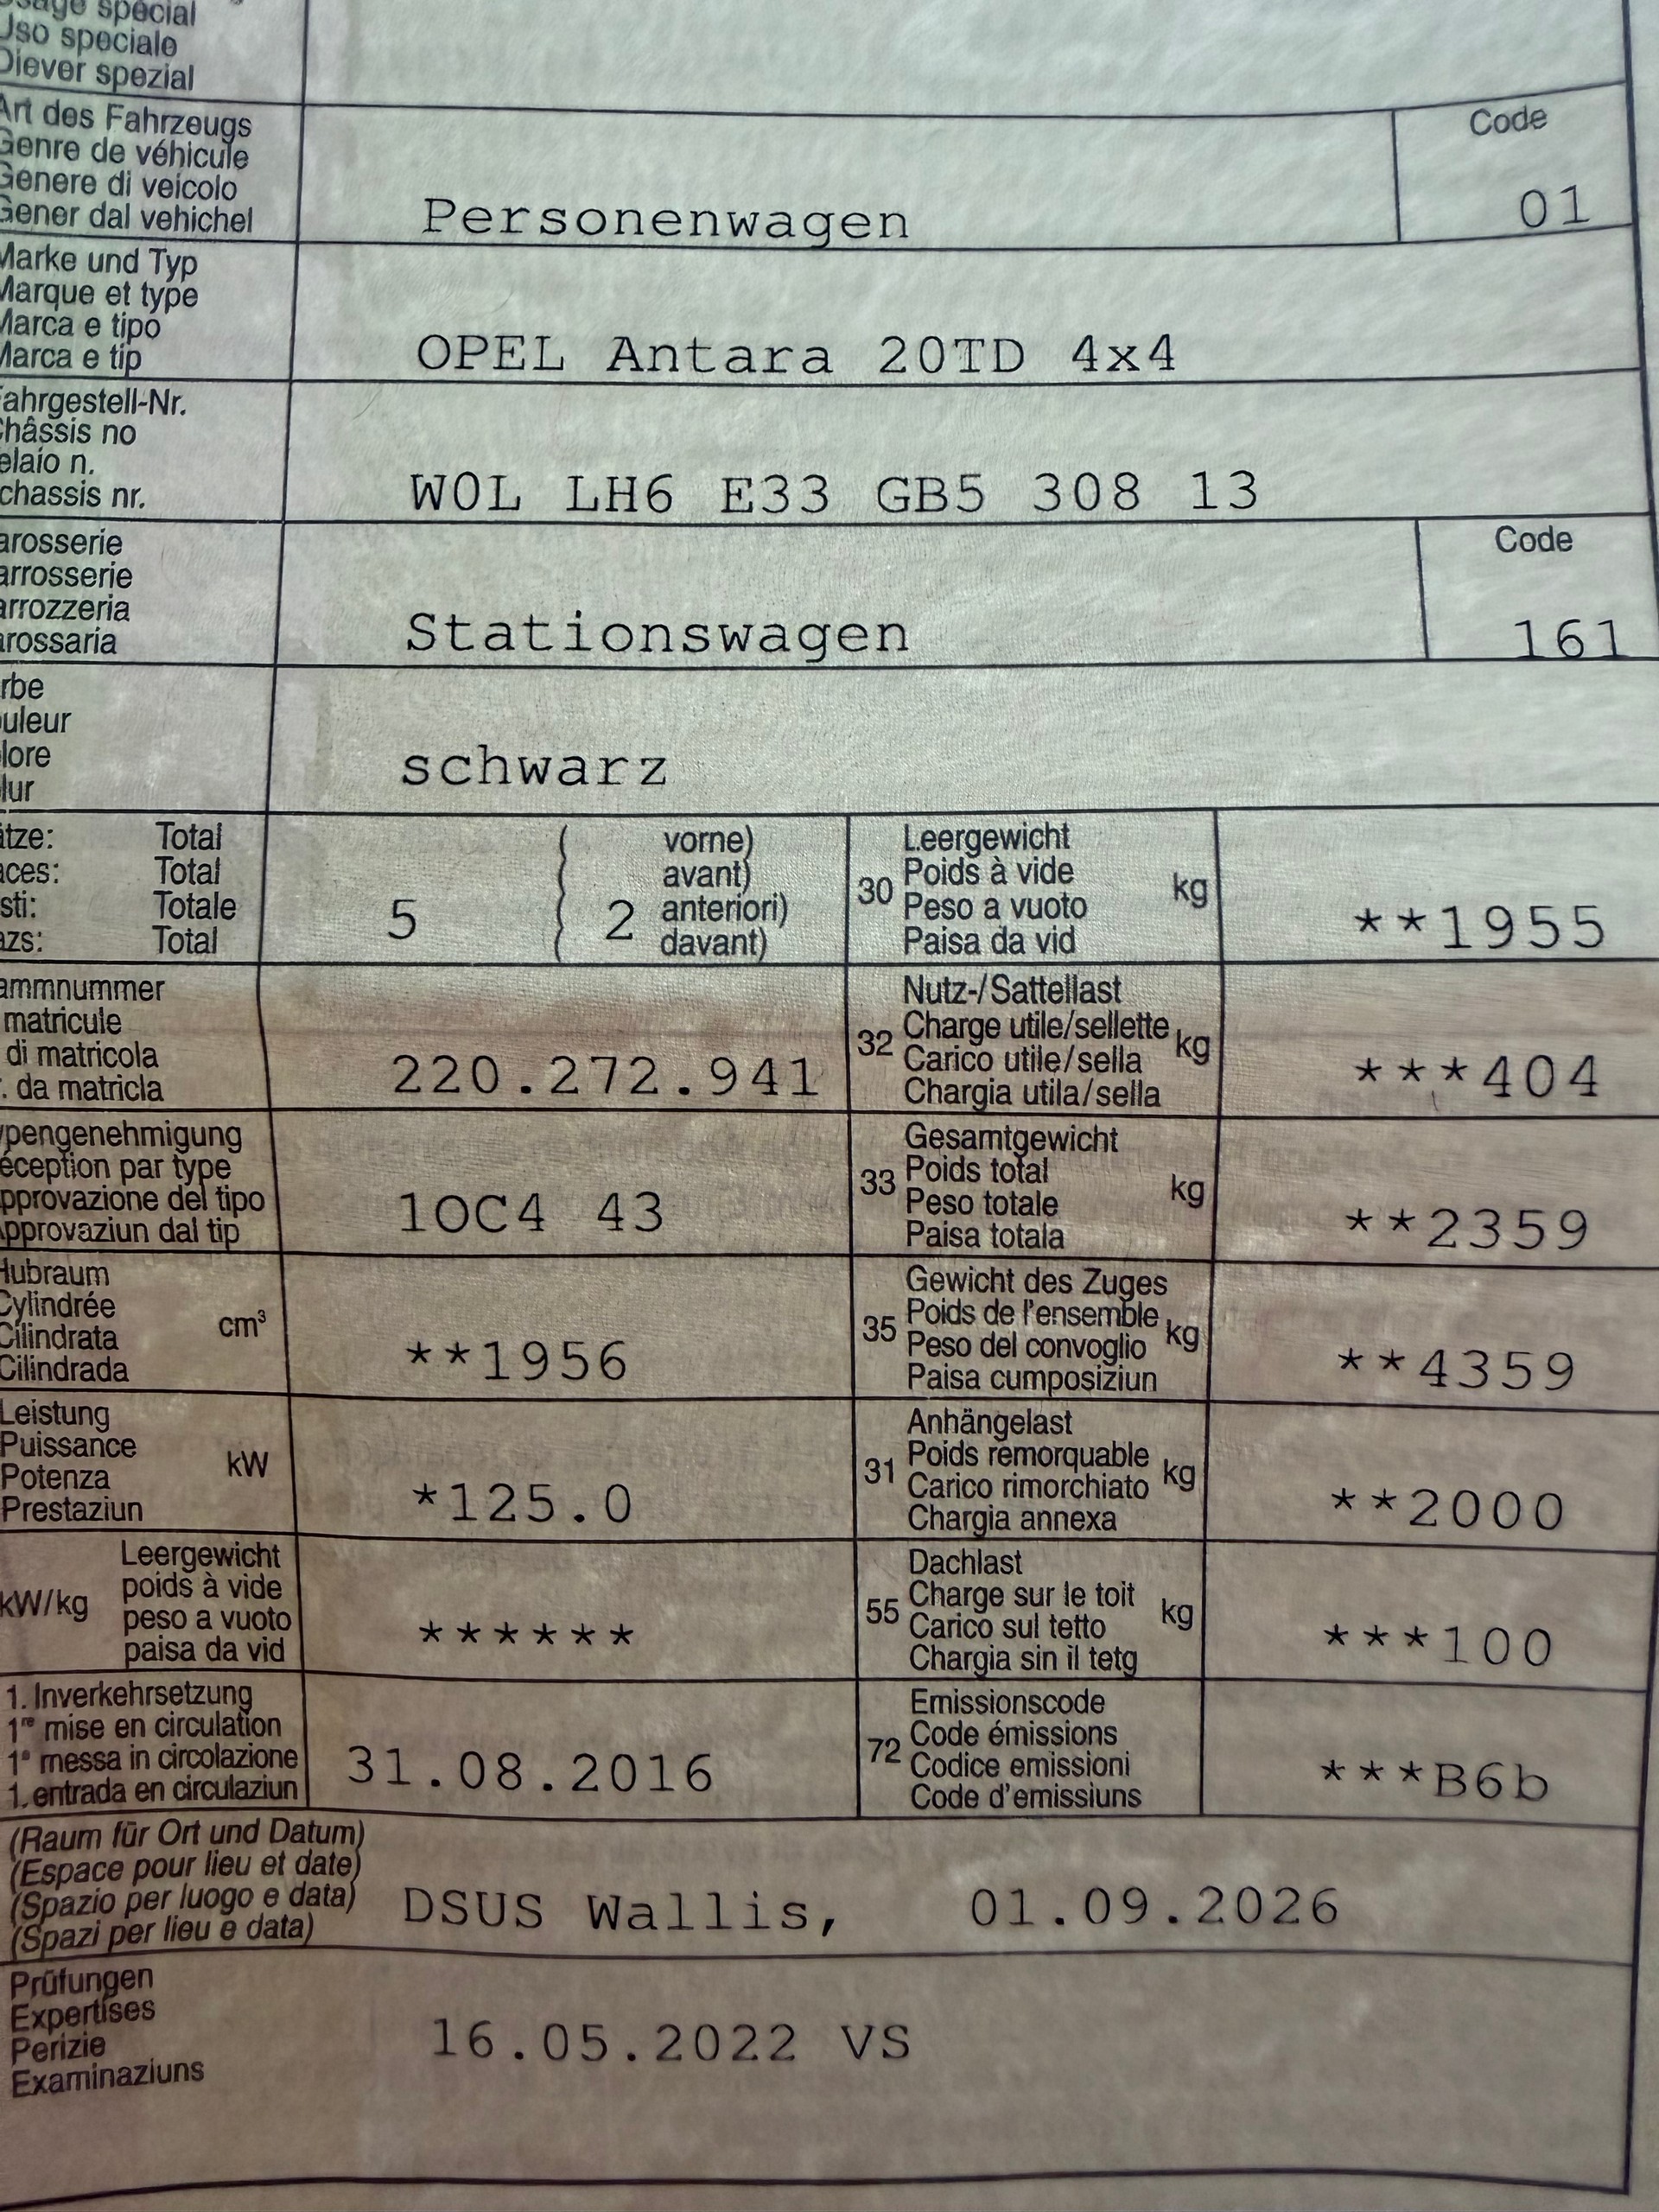 spécial
Uso speciale
Diever spezial
Art des Fahrzeugs
Genre de véhicule
Genere di veicolo
Gener dal vehichel
Personenwagen
Code
01
Marke und Typ
Marque et type
Marca e tipo
Marca e tip
OPEL Antara 20TD 4x4
Fahrgestell-Nr.
Châssis no
elaio n.
chassis nr.
W0L LH6 E33 GB5 308 13
arosserie
arrosserie
arrozzeria
arossaria
Stationswagen
Code
161
rbe
uleur
lore
lur
schwarz
ätze: Total
aces: Total
sti: Totale
azs: Total
5 ( 2
vorne)
avant)
anteriori)
davant)
30 Leergewicht
Poids à vide
Peso a vuoto
Paisa da vid
kg
**1955
ammnummer
matricule
di matricola
. da matricla
220.272.941
32 Nutz-/Sattellast
Charge utile/sellette
Carico utile/sella
Chargia utila/sella
kg
***404
ypengenehmigung
éception par type
pprovazione del tipo
Approvaziun dal tip
1OC4 43
33 Gesamtgewicht
Poids total
Peso totale
Paisa totala
kg
**2359
Hubraum
Cylindrée
Cilindrata
Cilindrada
cm³
**1956
35 Gewicht des Zuges
Poids de l'ensemble
Peso del convoglio
Paisa cumposiziun
kg
**4359
Leistung
Puissance
Potenza
Prestaziun
kW
*125.0
31 Anhängelast
Poids remorquable
Carico rimorchiato
Chargia annexa
kg
**2000
kW/kg
Leergewicht
poids à vide
peso a vuoto
paisa da vid
******
55 Dachlast
Charge sur le toit
Carico sul tetto
Chargia sin il tetg
kg
***100
1. Inverkehrsetzung
1re mise en circulation
1a messa in circolazione
1. entrada en circulaziun
31.08.2016
72 Emissionscode
Code émissions
Codice emissioni
Code d'emissiuns
***B6b
(Raum für Ort und Datum)
(Espace pour lieu et date)
(Spazio per luogo e data)
(Spazi per lieu e data)
DSUS Wallis, 01.09.2026
Prüfungen
Expertises
Perizie
Examinaziuns
16.05.2022 VS